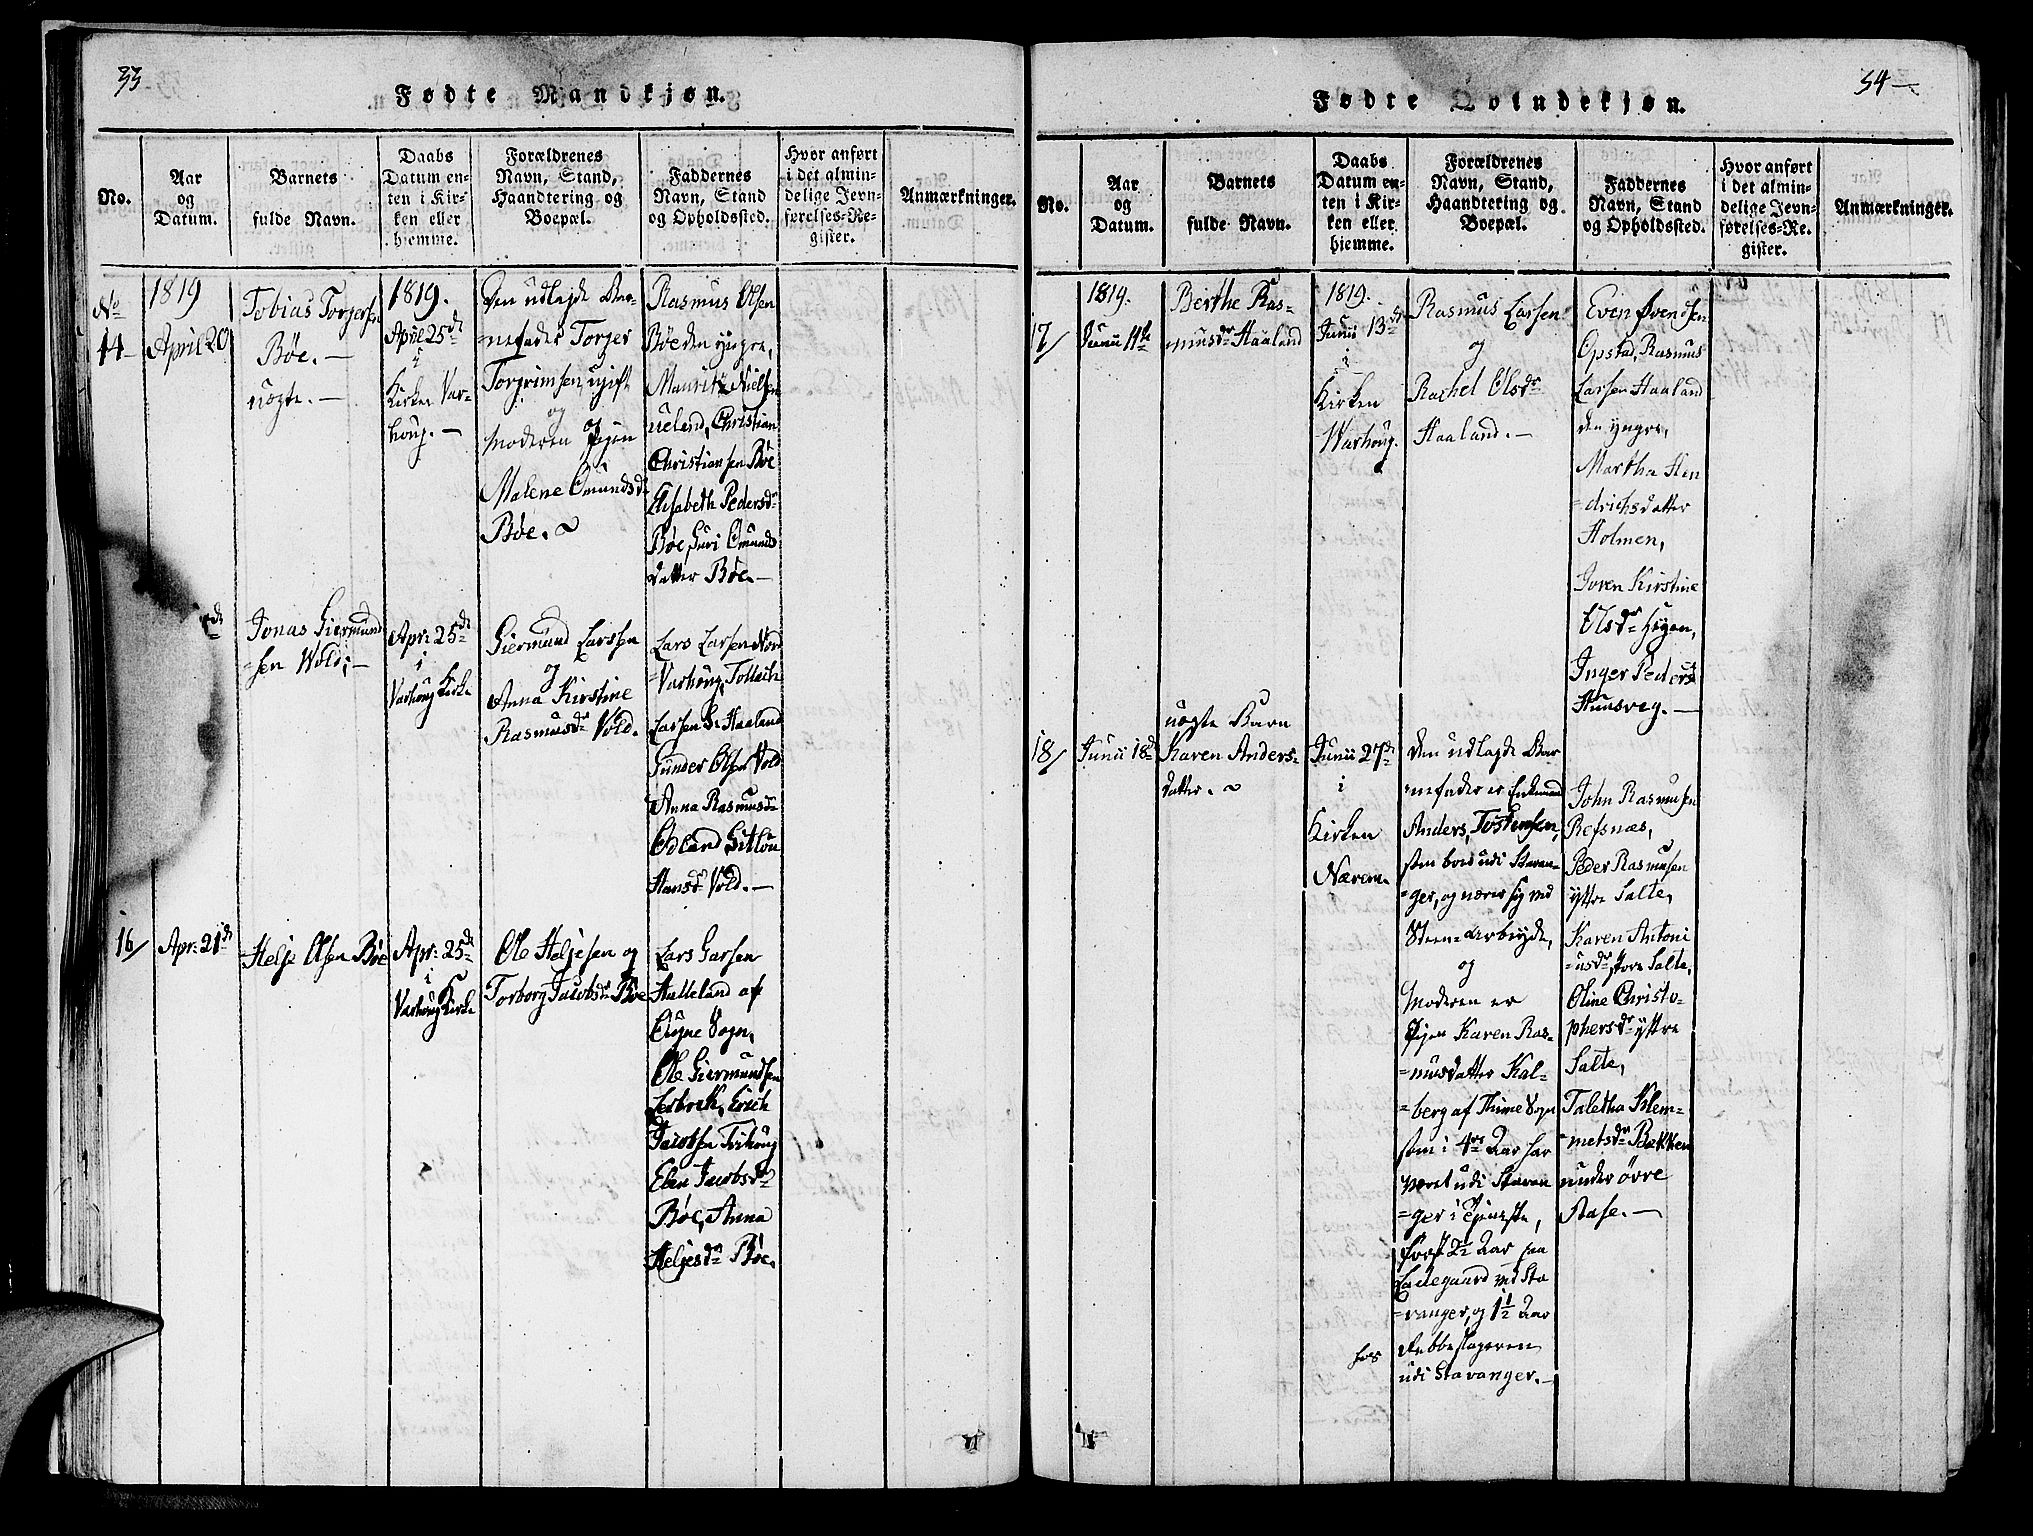 33
Fødte Mandkjøn.
No.
Aar
og
Datum.
Barnets
fulde Navn.
Daabs
Datum en-
ten i Kir-
ken eller
hiemme.
Forældrenes
Navn, Stand,
Haandtering og
Boepæl.
Faddernes
Navn, Stand
og Opholdssted.
Hvor anført
i det almin-
delige Jevn-
førelses-Re-
gister.
Anmærkninger.
No
14
1819
April 20
Tobias Torgersen
Bøe.—
uægte.—
1819.
April 25de
i
Kirken Var-
houg.—
Den udlagde Bar-
nefader Torger
Torgrimsen, ugift
og
Moderen Pigen
Malene Omundsdr
Bøe.
Rasmus Olsen
Bøe den yngre,
Mauritz Nielsen
ueland, Christian
Christiansen Bøe
Elisabeth Pedersdr
Bøe, Guri Omunds-
datter Bøe.—
de
Jonas Giermund
=sen Wold.—
Apr: 25de
i
Varhoug Kirke
Giermund Larssen
og
Anna Kirstine
Rasmusdr Vold.
Lars Larsen Nord
=Varhoug, Tollach
Larsen Haaland
Gunder Olsen Vold
Anna Rasmusdr
Odland
Hansdr Vold.—
16/
Apr: 21de
Helje Olsen Bøe
Apr: 25de
i
Varhoug Kirke
Ole Heljesen og
Torborg Jacobsdr Bøe
Lars Garsen
Halleland af
Ougne Sogn,
Ole Giermundsen
Lerbrek, Erich
Jacobsen Tvihoug
Elen Jacobsdr
Bøe, Anna
Heljesdr Bøe.
34—
Fødte Qvindekjøn.
No.
Aar
og
Datum.
Barnets
fulde Navn.
Daabs
Datum en-
ten i Kir-
ken eller
hiemme.
Forældrenes
Navn, Stand,
Haandtering og
Boepæl.
Faddernes
Navn, Stand
og Opholdssted.
Hvor anført
i det almin-
delige Jevn-
førelses-Re-
gister.
Anmærkninger.
17/
1819.
Junii 11te
Berthe Ras-
musdr Haaland
1819.
Junii 13de
i
Kirken
Warhoug.
Rasmus Larsen
og
Rachel Olsdr
Haaland.—
Even Evendsen
Opstad, Rasmus
Larsen Haaland
den yngre,
Martha Hen
=drichsdatter
Holmen,
Joren Kirstine
Olsdr Høyen,
Inger Pedersdr
Hunsveg.—
18/
Junii 18de
uægte Barn
Karen Anders-
datter.
Junii 27de
i
Kirken
Nærem.
Den udlagde Bar
=nefader er Enkemand
Anders Tostensen,
som boer udi Stavan-
=ger, og nærer sig med
Steen-arbeyde,
og
Moderen er
Pigen Karen Ras-
=musdatter Kal-
=berg af Thime Sogn
som i 4re Aar har
været udi Stavan
=ger i Tjeneste,
først 2½ Aar paa
Ladegaard ved Sta
=vanger, og 1½ Aar
hos
Rebbeslageren
udi Stavanger.—
John Rasmusen
Refsnæs,
Peder Rasmusen
yttre Salte,
Karen Antoni
=usdr, store Salte,
Oline Christo-
phersdr yttre
Salte,
Taletha Klem-
=metsdr Bakken
under øvre
Rase.—